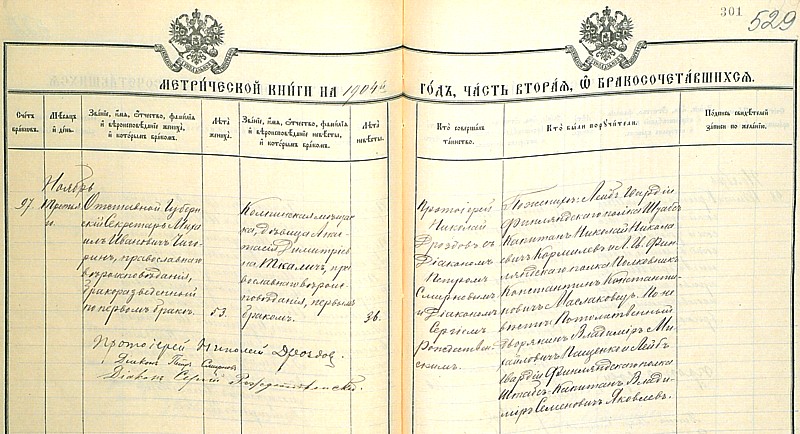 301
529
МЕТРИЧЕСКОЙ КНИГИ НА 1904й
ГОДЪ, ЧАСТЬ ВТОРАЯ, Ѿ БРАКОСОЧЕТАВШИХСЯ.
Счетъ браковъ.
Мѣсяцъ и день.
Званіе, имя, отчество, фамилія
и вѣроисповѣданіе жениха,
и которымъ бракомъ.
Лѣта
жениха.
Званіе, имя, отчество, фамилія
и вѣроисповѣданіе невѣсты,
и которымъ бракомъ.
Лѣта
невѣсты.
Кто совершалъ
таинство.
Кто были поручители.
Подпись свидѣтелей
записи по желанію.
Ноябрь
97.
Отставной Губерн
скій Секретарь Миха
илъ Ивановичъ Чиго
ринъ, православнаго
вѣроисповѣданія,
бракоразведенный
по первому браку.
53.
Коломенская мѣщан
ка, дѣвица
Димитріев
на Ткаличъ, пра
вославнаго вѣроис
повѣданія, первымъ
бракомъ.
36.
Протоіерей
Николай
Дроздовъ съ
Діакономъ
Петромъ
Смирновымъ
и Діакономъ
Сергіемъ
Рождествен
скимъ.
По женихѣ: Лейбъ Гвардіи
Финляндскаго полка Штабсъ
Капитанъ Николай Никола
евичъ Кормилевъ и Л. Гв. Фин
ляндскаго полка Полковникъ
Константинъ Константи
новичъ Маслаковецъ. По не
вѣстѣ: Потомственный
Дворянинъ Владиміръ Ми
хайловичъ Пащенко и Лейбъ
Гвардіи Финляндскаго полка
Штабсъ-Капитанъ Влади-
міръ Семеновичъ Яковлевъ.
Протоіерей Николай Дроздовъ.
Діаконъ Петръ Смирновъ
Діаконъ Сергій Рождественскій.